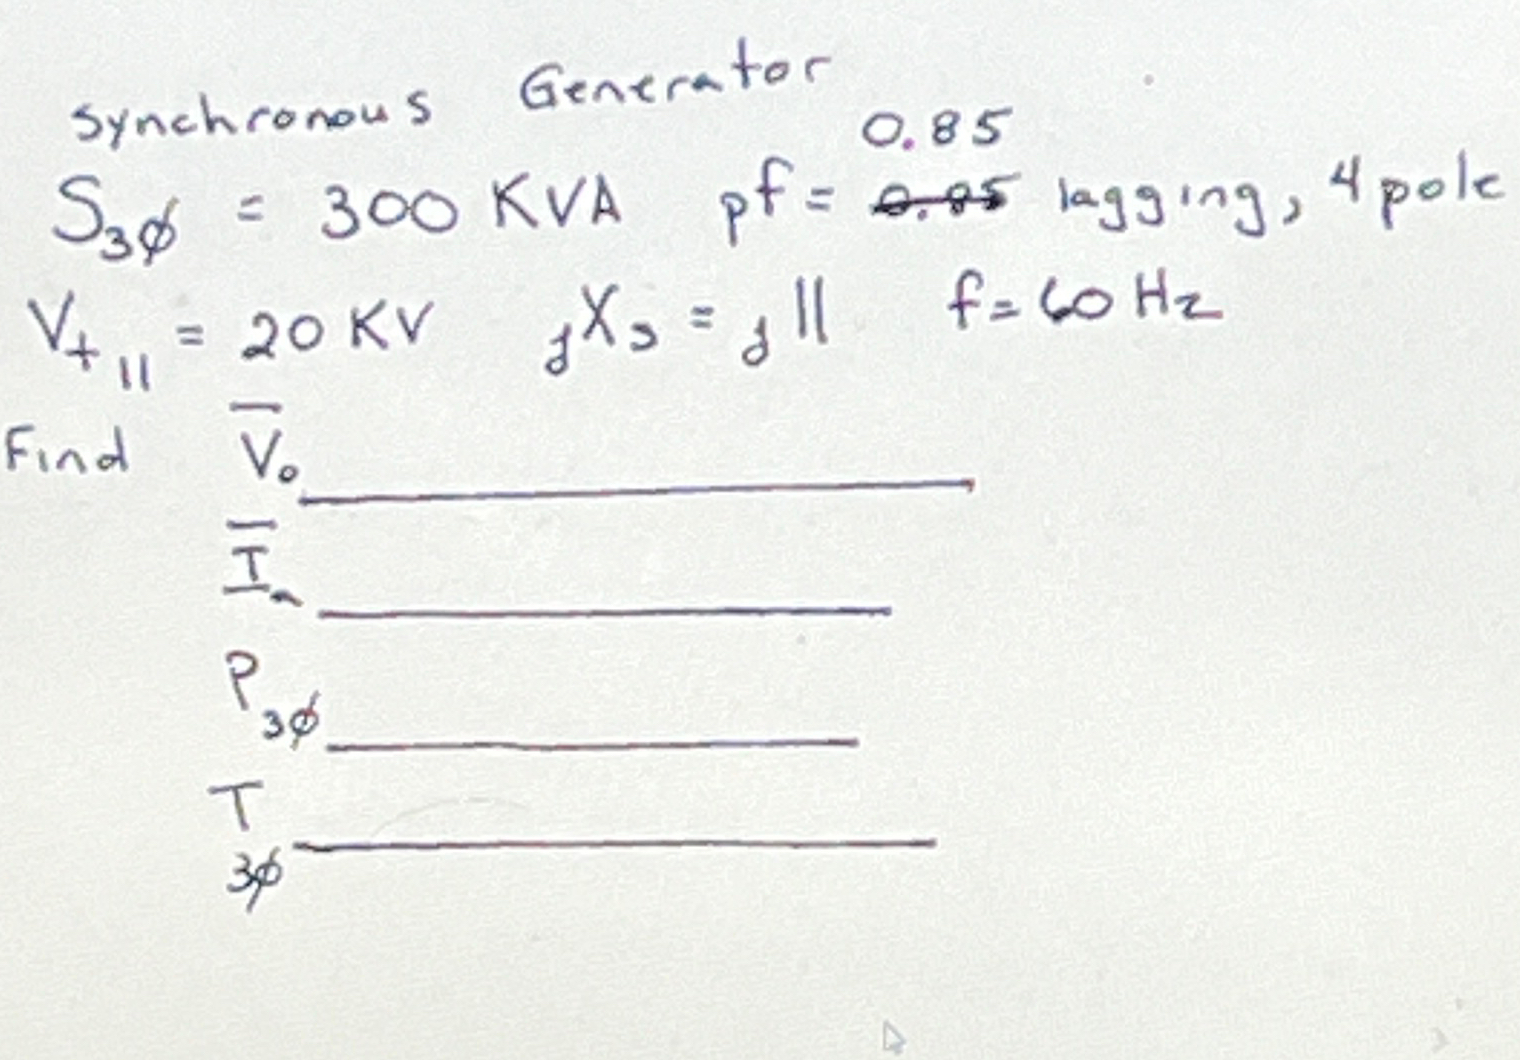 Synchronous Generator
0.85
S3φ = 300 KVA pf = 0.85 lagging, 4 pole
V+ll = 20 KV jXs = j11 f = 60 Hz
Find V̅o
I̅a
P3φ
T3φ